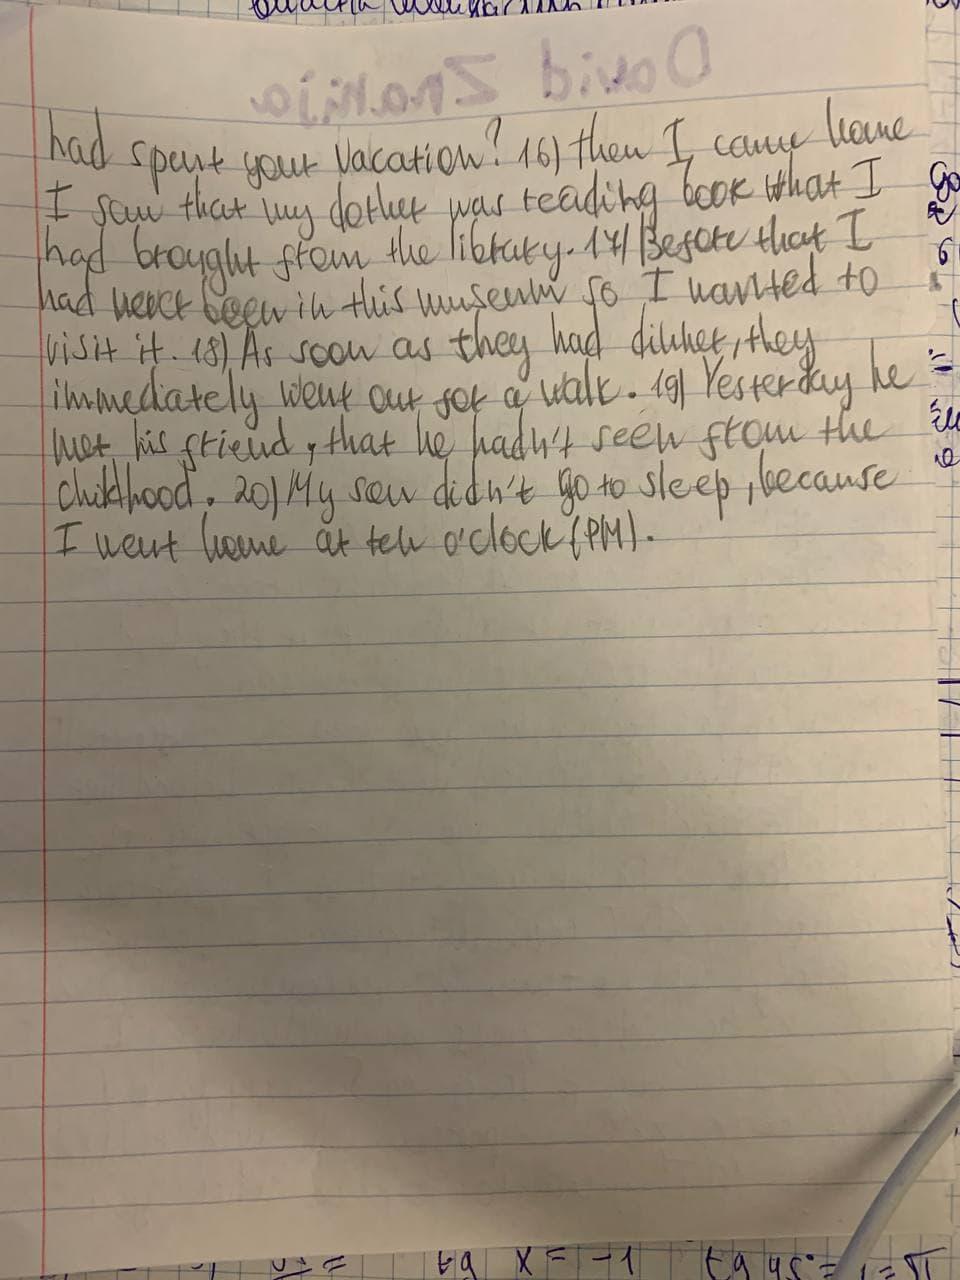 David Znanija
had spent your vacation? 16) then I came home
I saw that my dother was reading book what I
had brought from the library. 17) Before that I
had never been in this museum so I wanted to
visit it. 18) As soon as they had dinner, they
immediately went out for a walk. 19) Yesterday he
met his friend, that he hadn't seen from the
childhood. 20) My son didn't go to sleep, because
I went home at ten o'clock (PM).
x = -1